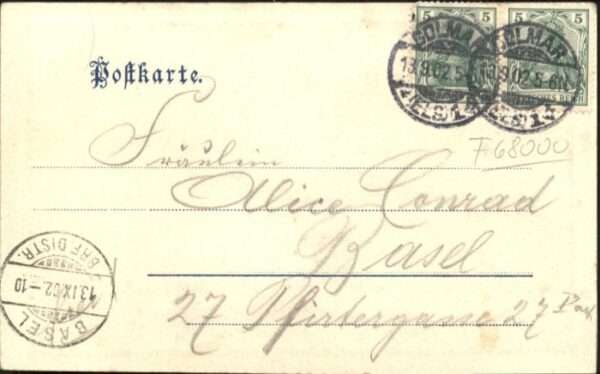 5 5 5 5
COLMAR
13.9.02.5-6N.
(ELS) 1 d
COLMAR
9.02.5-6N.
DEUTSCHES REICH
Postkarte.
F 68000
Fräulein
Alice Conrad
Basel
27 Pfirtergasse 27
BASEL
13.IX.02.-10
BRF. DISTR.